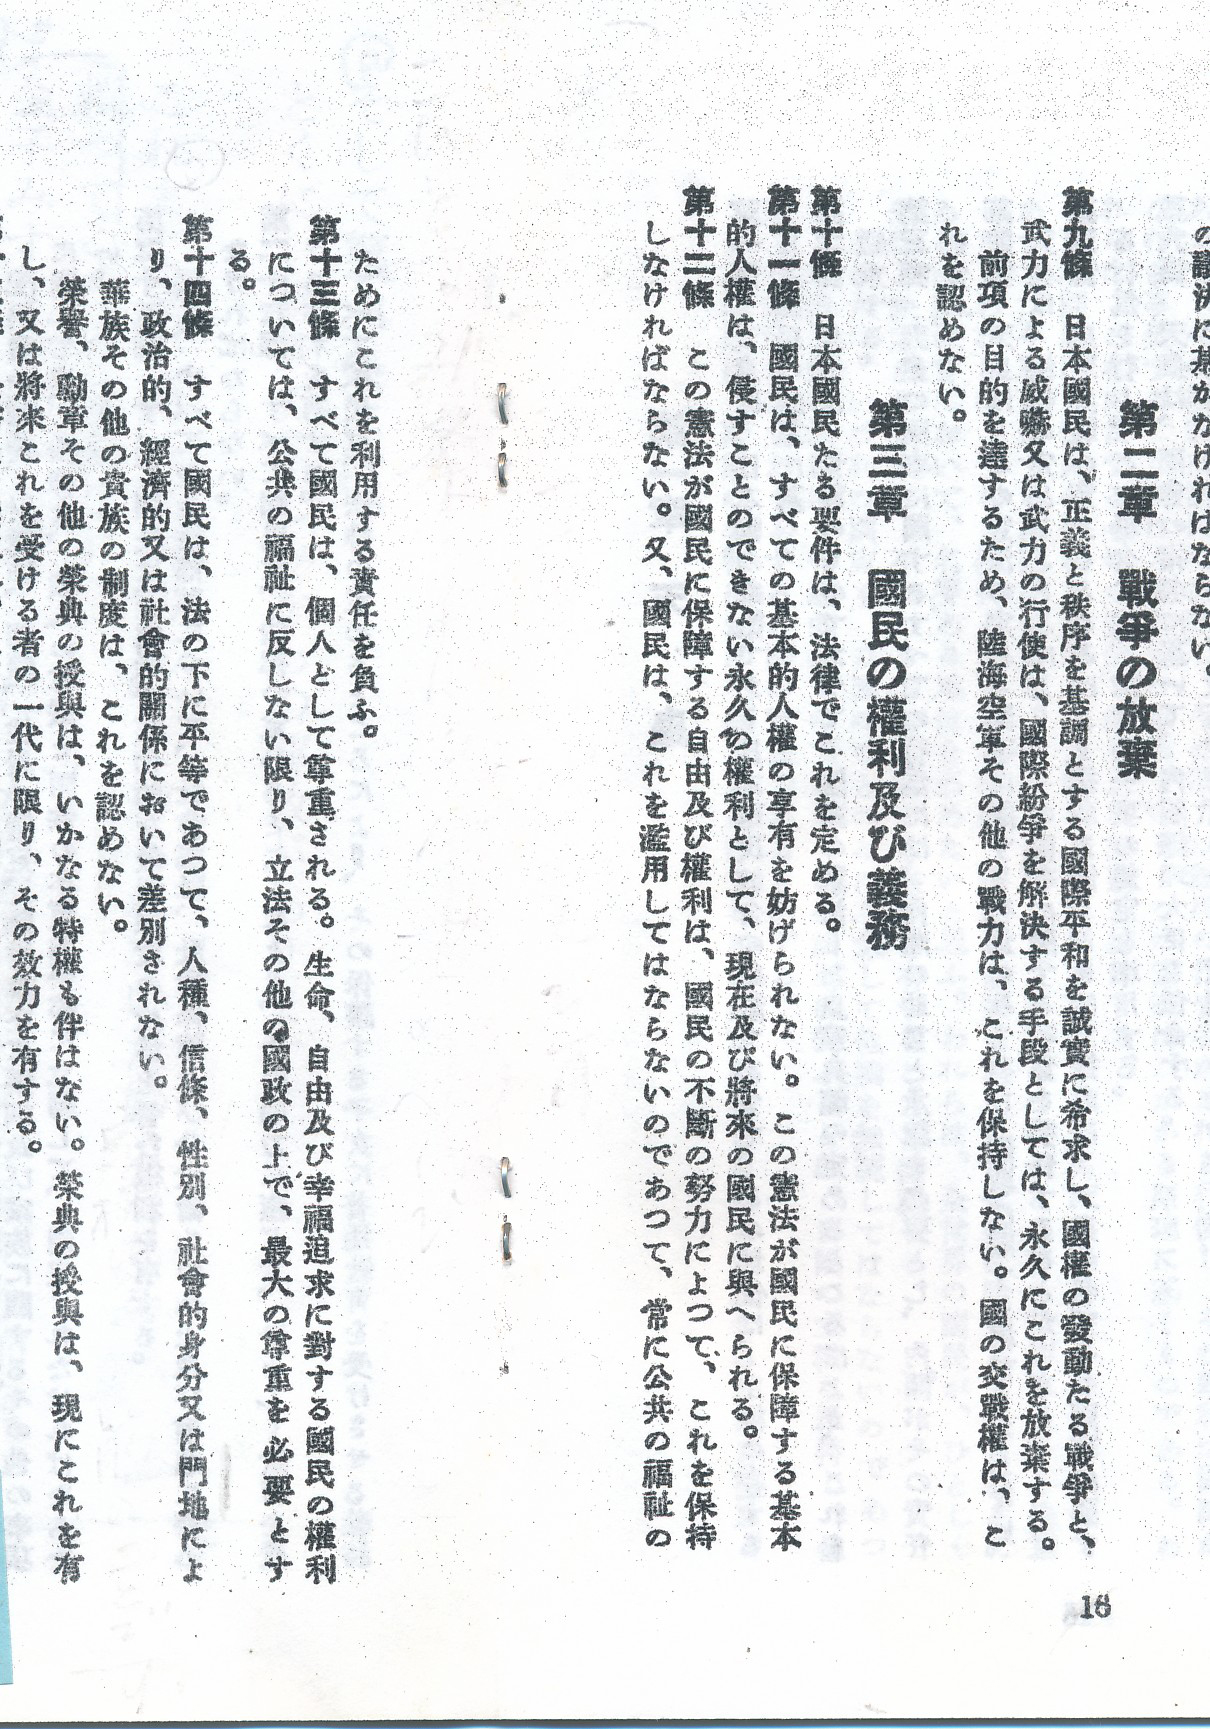 の議決に基かなければならない。
第二章　戰爭の放棄
第九條　日本國民は、正義と秩序を基調とする國際平和を誠實に希求し、國權の發動たる戰爭と、
武力による威嚇又は武力の行使は、國際紛爭を解決する手段としては、永久にこれを放棄する。
前項の目的を達するため、陸海空軍その他の戰力は、これを保持しない。國の交戰權は、こ
れを認めない。
第三章　國民の權利及び義務
第十條　日本國民たる要件は、法律でこれを定める。
第十一條　國民は、すべての基本的人權の享有を妨げられない。この憲法が國民に保障する基本
的人權は、侵すことのできない永久の權利として、現在及び將來の國民に與へられる。
第十二條　この憲法が國民に保障する自由及び權利は、國民の不斷の努力によつて、これを保持
しなければならない。又、國民は、これを濫用してはならないのであつて、常に公共の福祉の
16
ためにこれを利用する責任を負ふ。
第十三條　すべて國民は、個人として尊重される。生命、自由及び幸福追求に對する國民の權利
については、公共の福祉に反しない限り、立法その他の國政の上で、最大の尊重を必要とす
る。
第十四條　すべて國民は、法の下に平等であつて、人種、信條、性別、社會的身分又は門地によ
り、政治的、經濟的又は社會的關係において差別されない。
華族その他の貴族の制度は、これを認めない。
榮譽、勳章その他の榮典の授與は、いかなる特權も伴はない。榮典の授與は、現にこれを有
し、又は將來これを受ける者の一代に限り、その效力を有する。